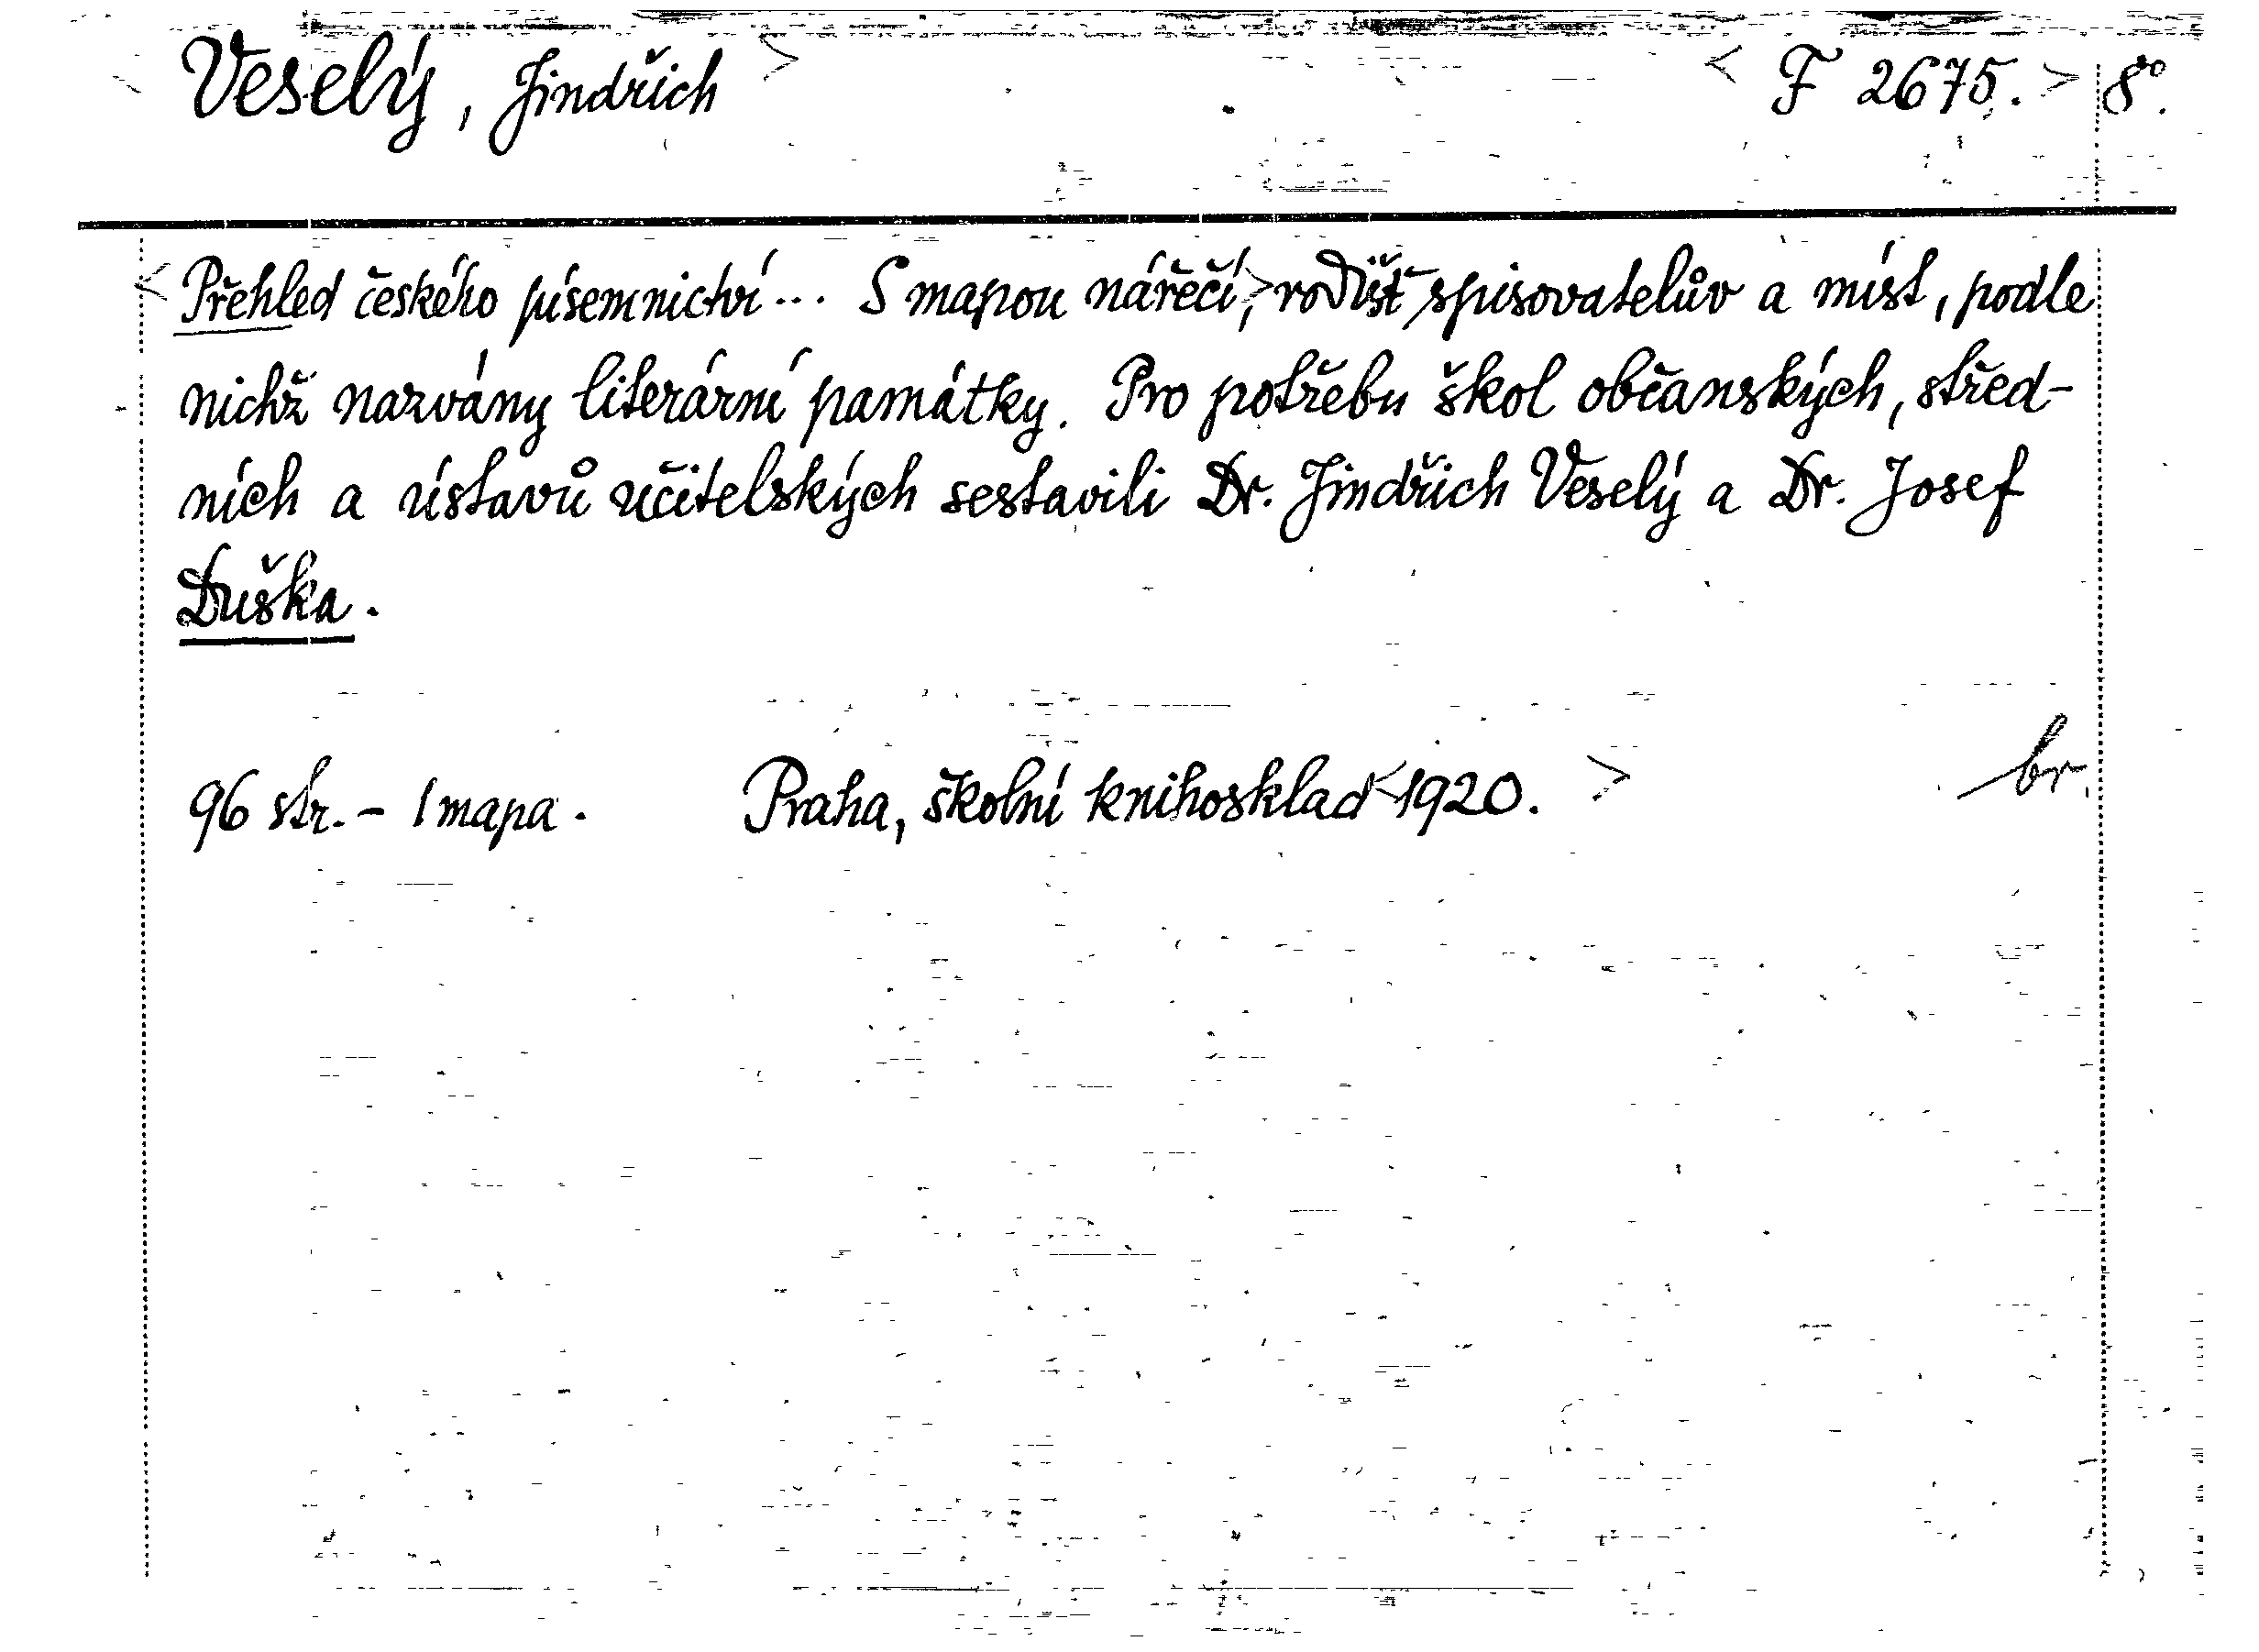 Veselý, Jindřich > < F 2675. > 8°.
< Přehled českého písemnictví... S mapou nářečí, > rodišť spisovatelův a míst, podle
nichž nazvány literární památky. Pro potřebu škol občanských, střed-
ních a ústavů učitelských sestavili Dr. Jindřich Veselý a Dr. Josef
Duška.
96 str. - 1 mapa. Praha, školní knihosklad < 1920. > br.